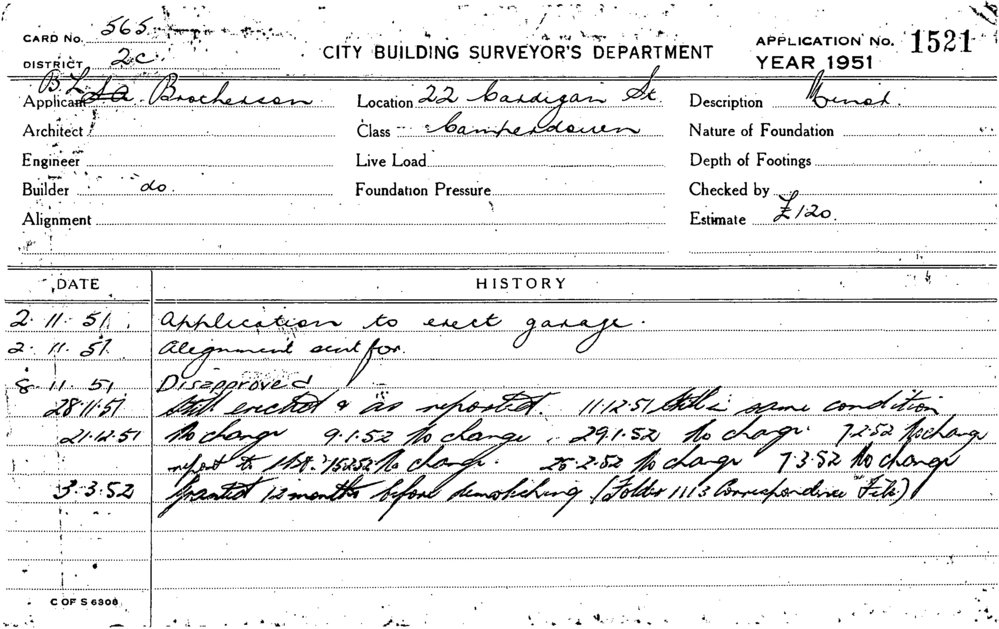 CARD No. 565
DISTRICT 2c.
CITY BUILDING SURVEYOR'S DEPARTMENT
APPLICATION No. 1521
YEAR 1951
Applicant B.L. Brocherson
Location 22 Cardigan St.
Description
Architect
Class Camperdown
Nature of Foundation
Engineer
Live Load
Depth of Footings
Builder do.
Foundation Pressure
Checked by
Alignment
Estimate £120.
DATE HISTORY
2. 11. 51. Application to erect garage.
2. 11. 51. Alignment sent for.
8. 11. 51 Disapproved
28.11.51 Still erected & as reported. 11.12.51 Still in same condition
21.12.51 No change 9.1.52 No change 29.1.52 No change. 7.2.52 No change
report to 15252 No change. 26.2.52 No change 7.3.52 No change
3.3.52 Granted 12 months before demolishing (Folder 1113 Correspondence File)
C OF S 6308